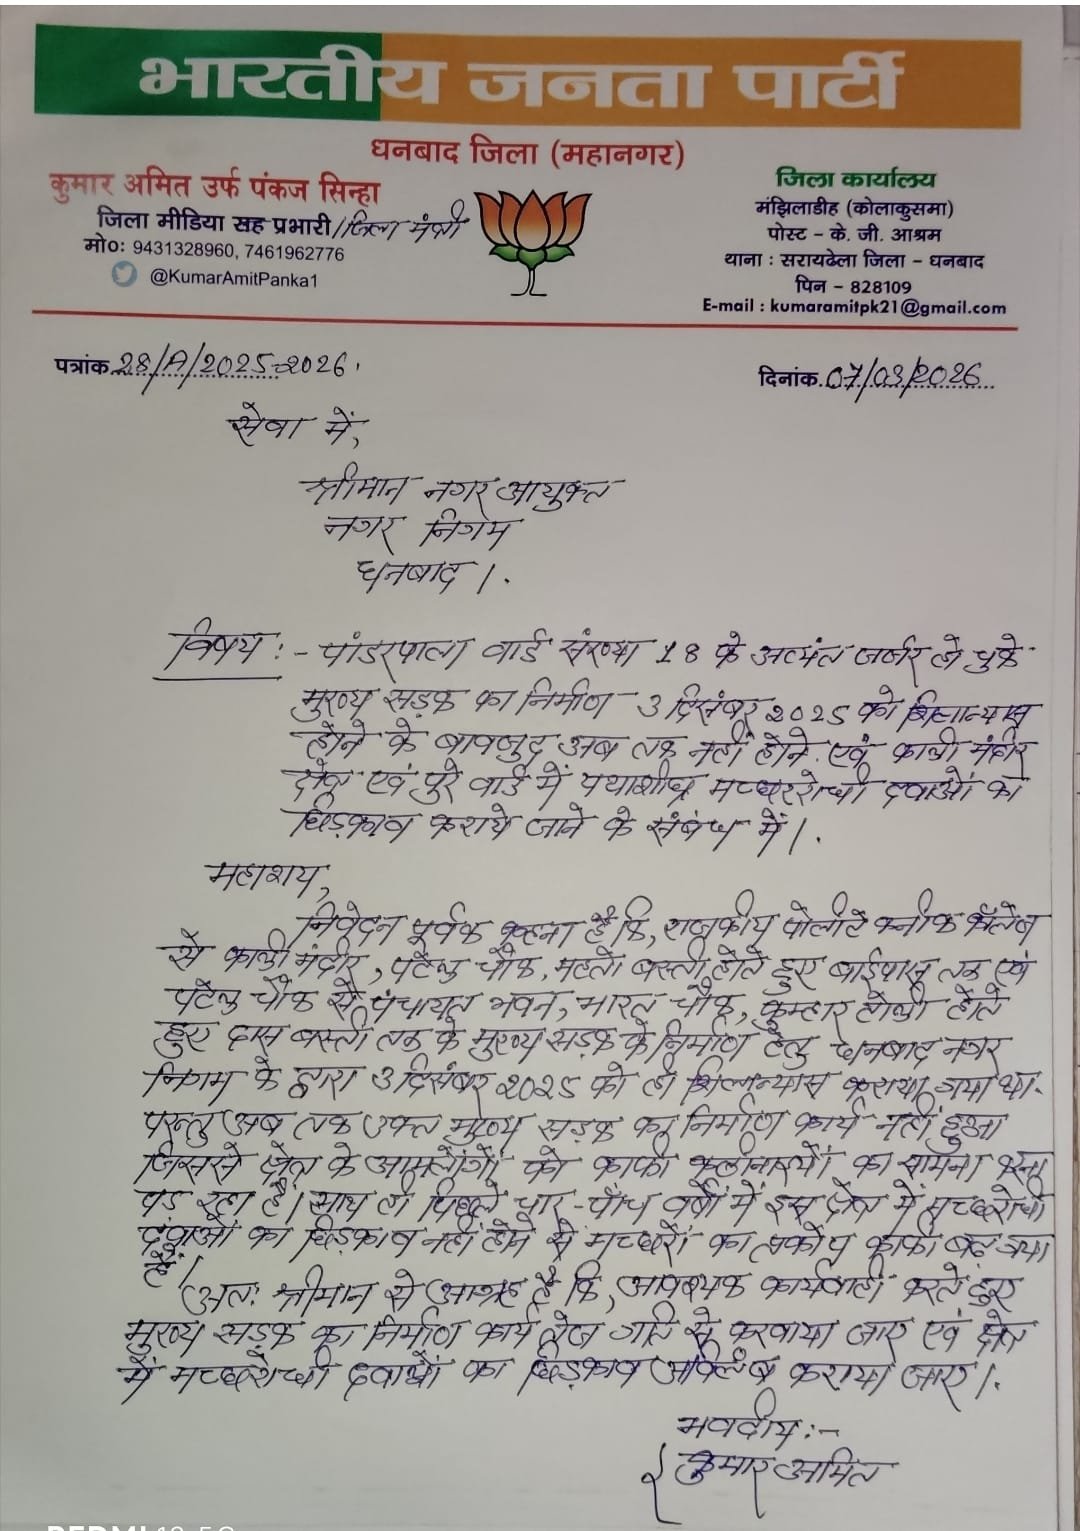 भारतीय जनता पार्टी
धनबाद जिला (महानगर)
कुमार अमित उर्फ पंकज सिन्हा
जिला मीडिया सह प्रभारी/जिला मंत्री
मो0: 9431328960, 7461962776
@KumarAmitPanka1
जिला कार्यालय
मंझिलाडीह (कोलाकुसमा)
पोस्ट - के. जी. आश्रम
थाना : सरायढेला जिला - धनबाद
पिन - 828109
E-mail : kumaramitpk21@gmail.com
पत्रांक 28/A/2025-2026.
दिनांक 07/03/2026
सेवा में,
श्रीमान नगर आयुक्त
नगर निगम
धनबाद।.
विषय :- पांडरपाला वार्ड संख्या 18 के अत्यंत जर्जर हो चुके
मुख्य सड़क का निर्माण 3 दिसंबर 2025 को शिलान्यास
होने के बावजुद अब तक नहीं होने एवं काली मंदीर
क्षेत्र एवं पुरे वार्ड में यथाशीघ्र मच्छररोधी दवाओं का
छिड़काव कराये जाने के संबंध में।.
महाशय,
निवेदन पूर्वक कहना है कि, राजकीय पोलीटेक्नीक कॅालेज
से काली मंदीर, पटेल चौक, महतो बस्ती होते हुए बाईपास तक एवं
पटेल चौक से पंचायत भवन, भारत चौक, कुम्हार टोली होते
हुए दास बस्ती तक के मुख्य सड़क के निर्माण हेतु धनबाद नगर
निगम के द्वारा 3 दिसंबर 2025 को ही शिलान्यास कराया गया था.
परन्तु अब तक उक्त मुख्य सड़क का निर्माण कार्य नहीं हुआ
जिससे क्षेत्र के आमलोगों को काफी कठीनाइयों का सामना करना
पड़ रहा है। साथ ही पिछले चार-पाँच वर्षों में इस क्षेत्र में मच्छररोधी
दवाओं का छिड़काव नहीं होने से मच्छरों का प्रकोप काफी बढ़ गया
है।
अतः श्रीमान से आग्रह है कि, आवश्यक कार्यवाही करते हुए
मुख्य सड़क का निर्माण कार्य तेज गति से करवाया जाए एवं क्षेत्र
में मच्छररोधी दवाओं का छिड़काव अविलंब कराया जाए।.
भवदीय :-
कुमार अमित